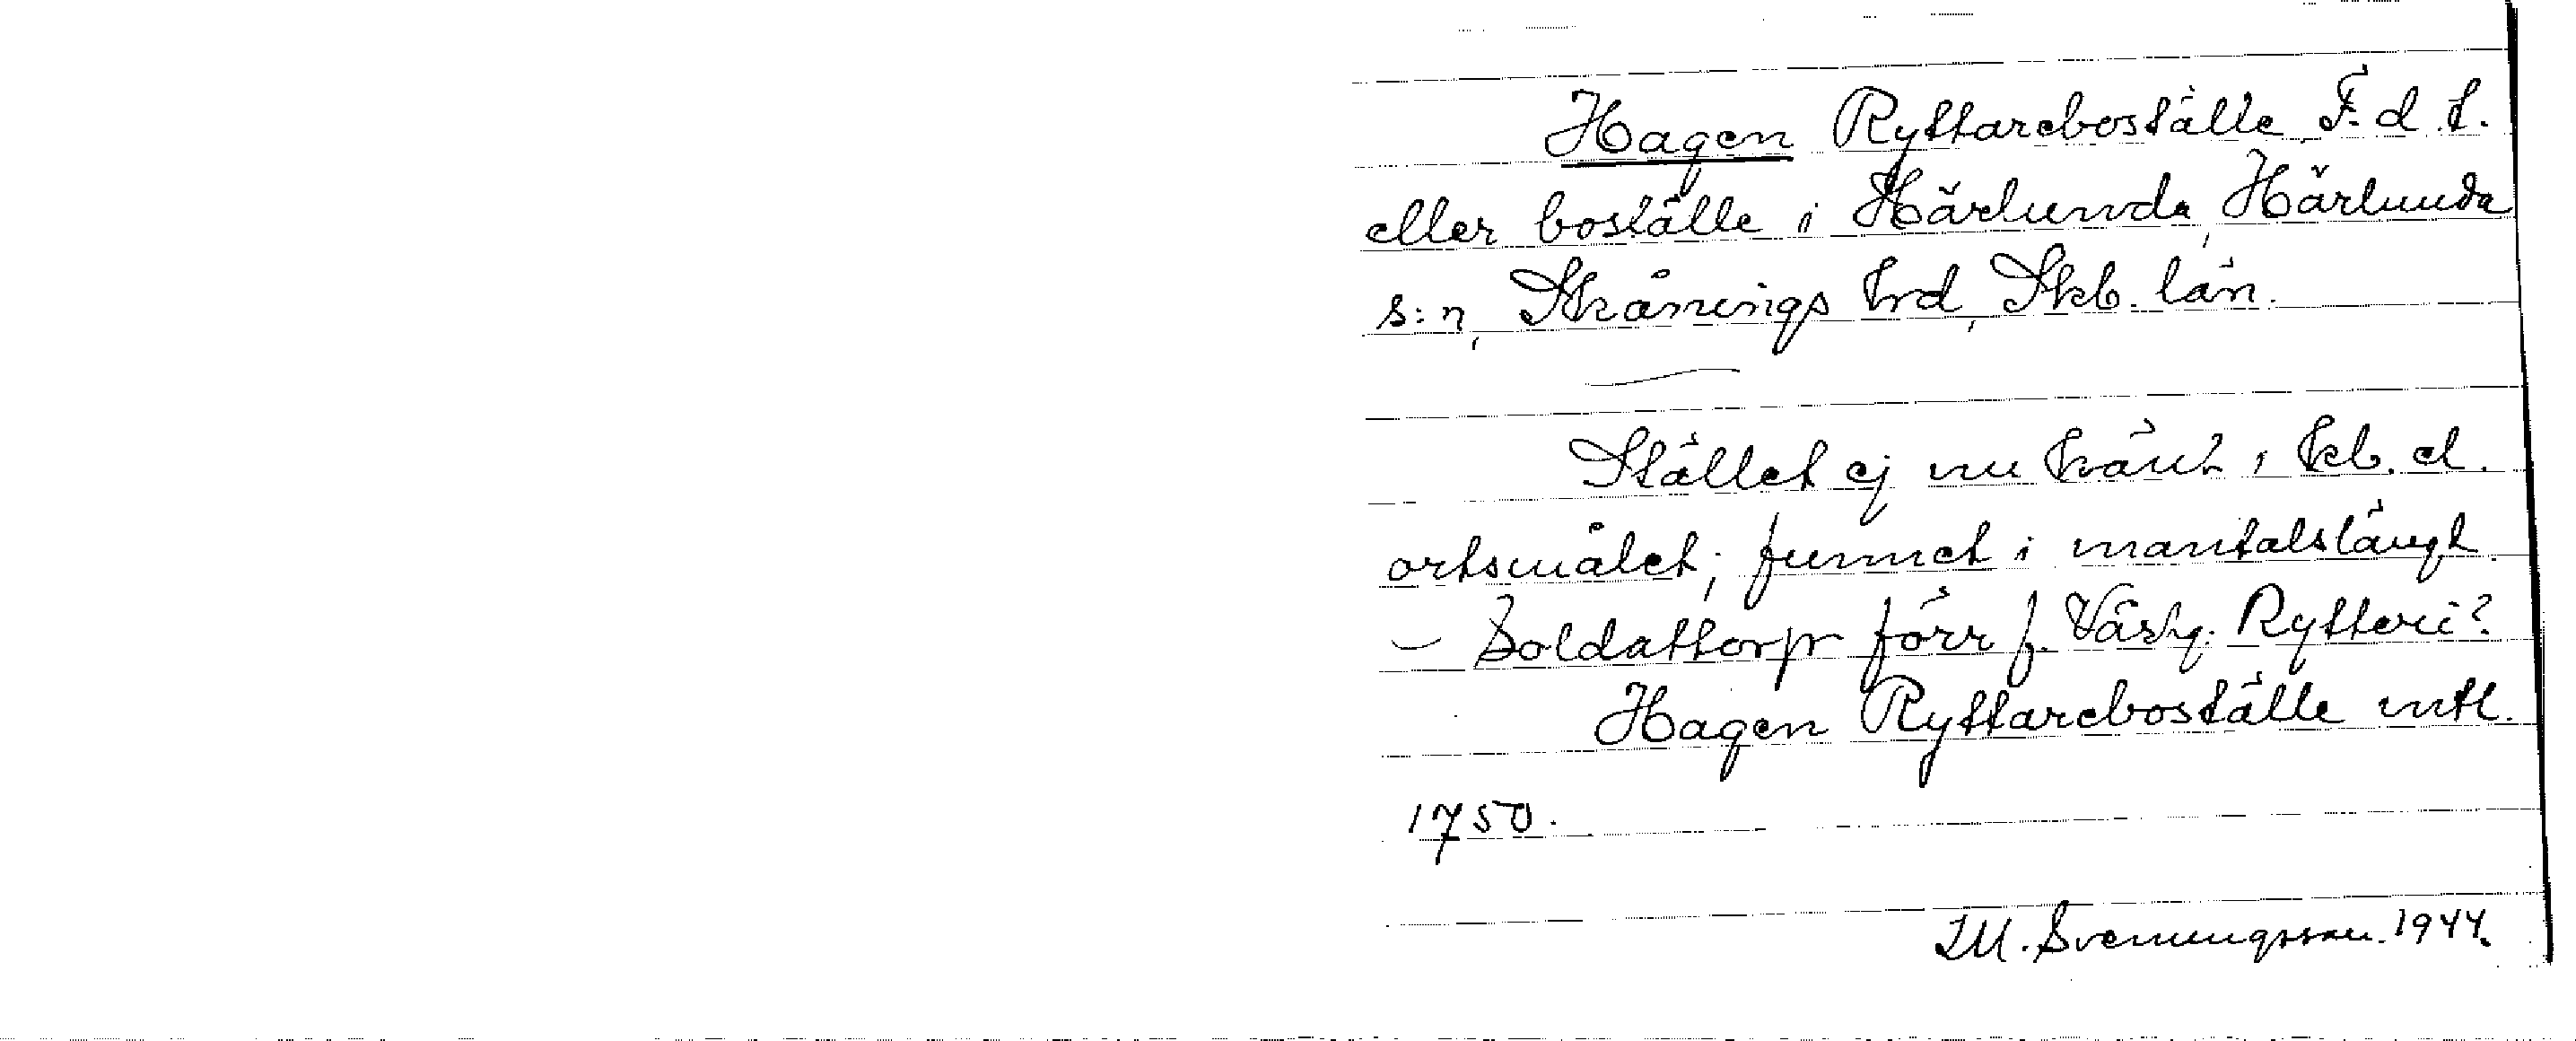 Hagen Ryttareboställe, F. d. t.
eller boställe i Härlunda, Härlunda
s:n, Skånings hrd, Skb. län.
Stället ej nu känt i kb. el.
ortsmålet; funnet i mantalslängd.
– Soldattorp förr f. Västg. Rytteri?
Hagen Ryttareboställe mtl.
1750.
M. Svenungsson. 1944.